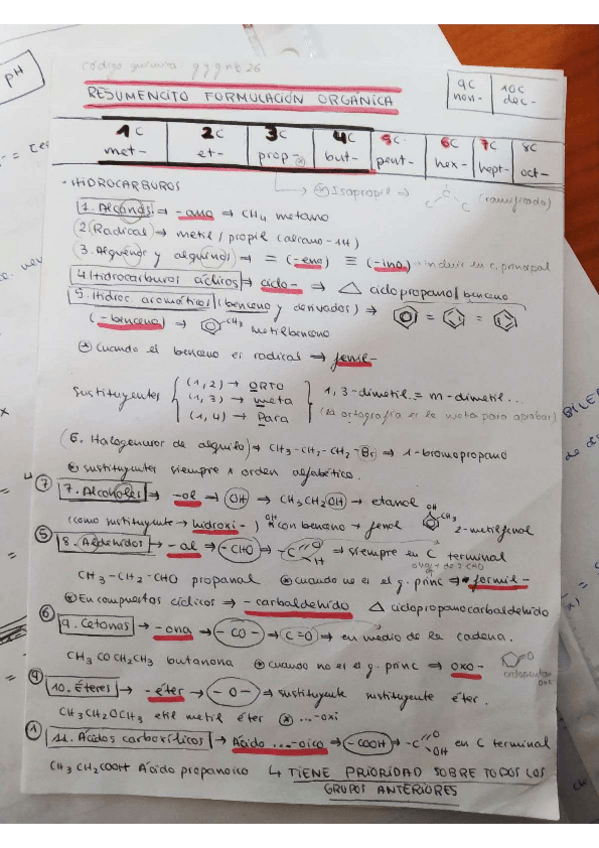 código quimica: gggnt 26
RESUMENCITO FORMULACIÓN ORGÁNICA
9C non-
10C dec-
1C 2C 3C 4C 5C 6C 7C 8C
met- et- prop- but- pent- hex- hept- oct-
pH
Isopropil ⇒ C C C (ramificado)
· HIDROCARBUROS
1. Alcanos → -ano ⇒ CH4 metano
2. Radical → metil / propil (alcano-1H)
3. Alquenos y alquinos → = (-eno) ≡ (-ino) incluir en c. principal
4. Hidrocarburos cíclicos → ciclo- → △ ciclopropano / benceno
5. Hidroc. aromáticos (benceno y derivados) ⇒
(-benceno) → CH3 metilbenceno
* Cuando el benceno es radical → fenil-
Sustituyentes
(1,2) → ORTO
(1,3) → meta
(1,4) → Para
1,3-dimetil = m-dimetil...
(la ortografía es la nota para aprobar)
6. Halogenuros de alquilo ⇒ CH3-CH2-CH2-Br ⇒ 1-bromopropano
sustituyentes siempre x orden alfabético.
⑦ 7. Alcoholes → -ol → OH → CH3CH2OH → etanol
(como sustituyente → hidroxi-) * con benceno → fenol OH OH CH3 2-metilfenol
⑤ 8. Aldehidos → -al → -CHO → -C=O H ⇒ siempre en C terminal
CH3-CH2-CHO propanal * cuando no es el g. princ ⇒ formil-
* En compuestos cíclicos ⇒ -carbaldehido △ ciclopropanocarbaldehido
⑥ 9. Cetonas → -ona → -CO- → C=O → en medio de la cadena.
CH3COCH2CH3 butanona * cuando no es el g. princ ⇒ oxo- O ciclopentanona
10. Éteres → -éter → -O- → sustituyente sustituyente éter.
CH3CH2OCH3 etil metil éter * ...-oxi
① 11. Ácidos carboxílicos → Ácido ...-oico → -COOH → -C=O OH en C terminal
CH3CH2COOH Ácido propanoico ↳ TIENE PRIORIDAD SOBRE TODOS LOS
GRUPOS ANTERIORES